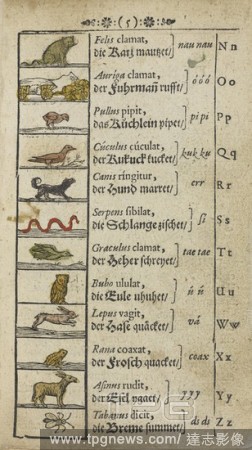 ( 5 )
Felis clamat,
die Katz mautzet
nau nau
N n
Auriga clamat,
der Fuhrmañ rufft
ó ó ó
O o
Pullus pipit,
das Küchlein pipet
pi pi
P p
Cúculus cúculat,
der Kukuck kucket
kuk ku
Q q
Canis ringitur,
der Hund marret
err
R r
Serpens sibilat,
die Schlange zischet
si
S s
Graculus clamat,
der Heher schreyet
tae tae
T t
Bubo ululat,
die Eule uhuhet
ú ú
U u
Lepus vagit,
der Hase quäcket
vá
W w
Rana coaxat,
der Frosch quacket
coax
X x
Asinus rudit,
der Esel ygaet
y y y
Y y
Tabanus dicit,
die Breme summet
ds ds
Z z
www.tpgnews.com/達志影像